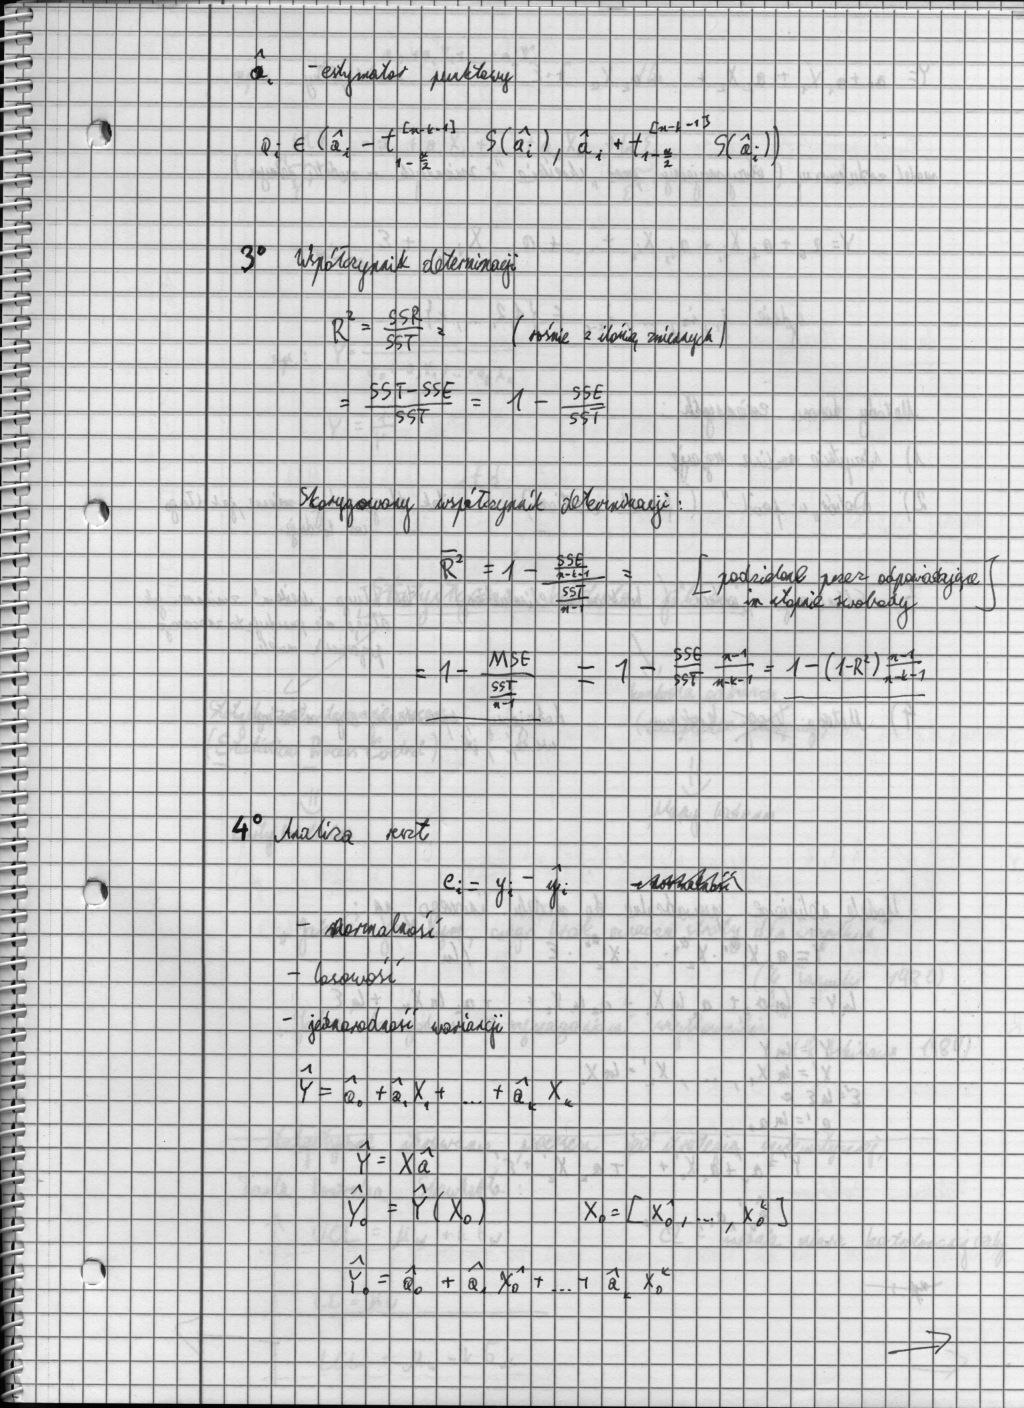 â_i - estymator punktowy
a_i ∈ (â_i - t_{1-α/2}^{[n-k-1]} S(â_i), â_i + t_{1-α/2}^{[n-k-1]} S(â_i))
3° Współczynnik determinacji
R² = SSR/SST = (rośnie z ilością zmiennych)
= (SST-SSE)/SST = 1 - SSE/SST
Skorygowany współczynnik determinacji:
R̄² = 1 - (SSE/(n-k-1))/(SST/(n-1)) = [podzielone przez odpowiadające
im stopnie swobody]
= 1 - MSE/(SST/(n-1)) = 1 - SSE/SST (n-1)/(n-k-1) = 1-(1-R²) (n-1)/(n-k-1)
4° Analiza reszt
e_i = y_i - ŷ_i
- normalność
- losowość
- jednorodność wariancji
Ŷ = â_0 + â_1 X_1 + ... + â_k X_k
Ŷ = Xâ
Ŷ_0 = Ŷ(X_0) X_0 = [X_0^1, ..., X_0^k]
Ŷ_0 = â_0 + â_1 X_0^1 + ... + â_k X_0^k
→